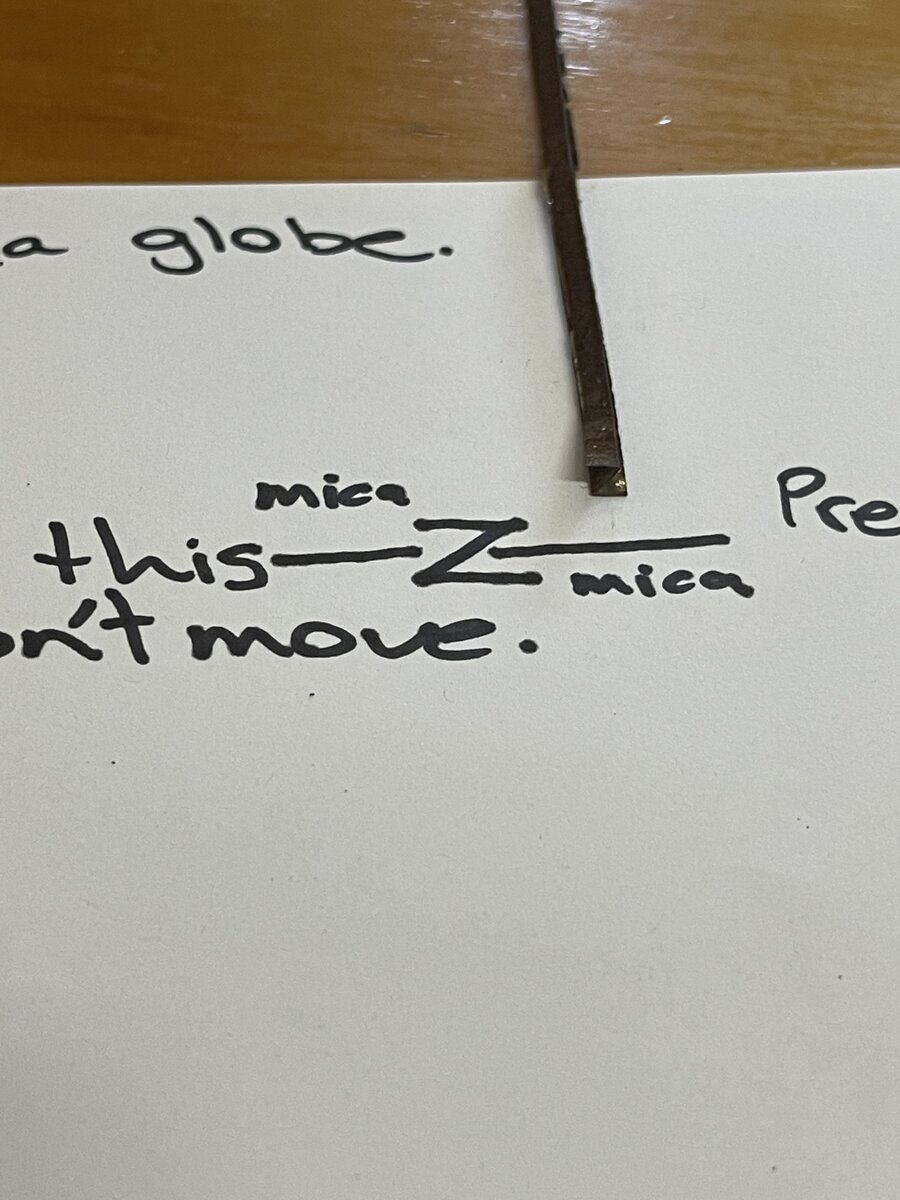 a globe.
mica
this Z Pre
mica
on't move.